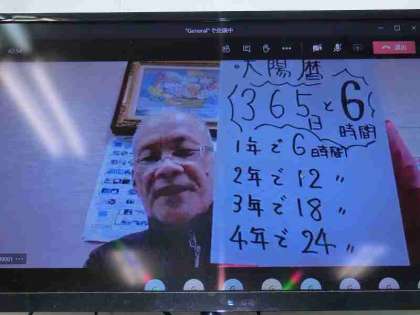 "General"で会議中
太陽暦
365日と6時間
1年で6時間
2年で12〃
3年で18〃
4年で24〃